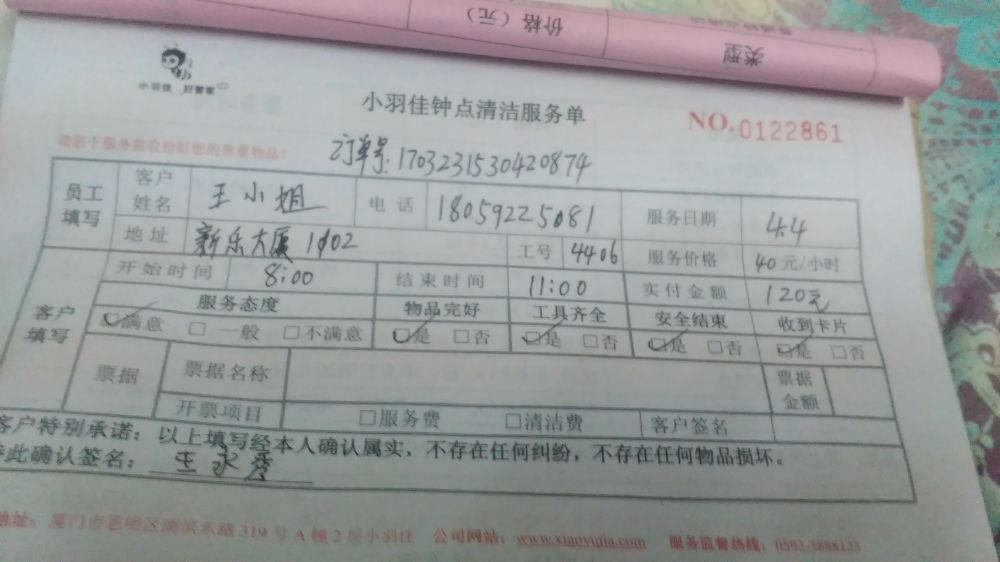 价格（元）
类型
小羽佳 好管家
小羽佳钟点清洁服务单
NO.0122861
订单号:1703231530420874
员工填写 客户姓名 王小姐 电话 18059225081 服务日期 4.4
地址 新乐大厦 1102 工号 4406 服务价格 40元/小时
客户填写 开始时间 8:00 结束时间 11:00 实付金额 120元
服务态度 物品完好 工具齐全 安全结束 收到卡片
☑满意 □一般 □不满意 ☑是 □否 ☑是 □否 ☑是 □否 ☑是 □否
票据 票据名称 票据金额
开票项目 □服务费 □清洁费 客户签名
客户特别承诺：以上填写经本人确认属实，不存在任何纠纷，不存在任何物品损坏。
特此确认签名：王永秀
地址：厦门市思明区湖滨东路319号A幢2层小羽佳 公司网站：www.xiaoyujia.com 服务监督热线：0592-5888123